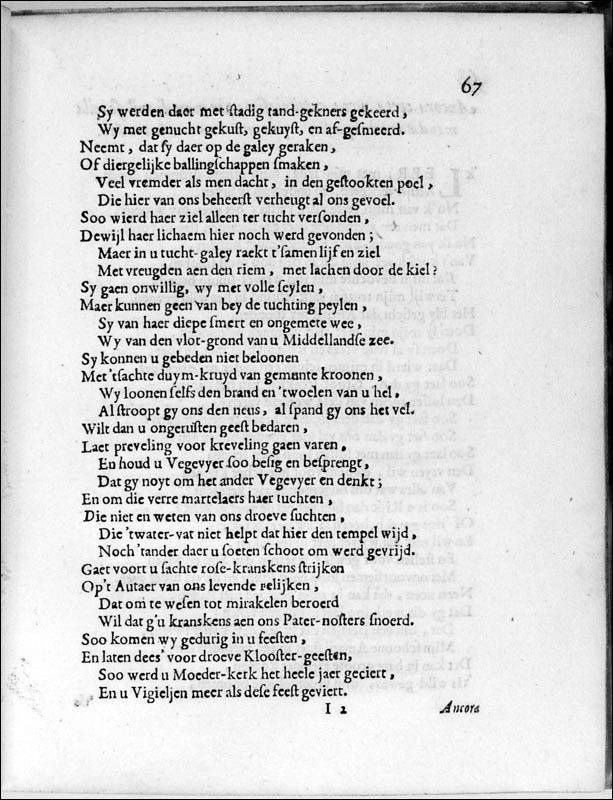 67
Sy werden daer met stadig tand-gekners gekeerd,
Wy met genucht gekust, gekuyst, en af-gesmeerd.
Neemt, dat sy daer op de galey geraken,
Of diergelijke ballingschappen smaken,
Veel vremder als men dacht, in den gestookten poel,
Die hier van ons beheerst verheugt al ons gevoel.
Soo wierd haer ziel alleen ter tucht versonden,
Dewijl haer lichaem hier noch werd gevonden;
Maer in u tucht-galey raekt t'samen lijf en ziel
Met vreugden aen den riem, met lachen door de kiel?
Sy gaen onwillig, wy met volle seylen,
Maer kunnen geen van bey de tuchting peylen,
Sy van haer diepe smert en ongemete wee,
Wy van den vlot-grond van u Middellandse zee.
Sy konnen u gebeden niet beloonen
Met 'tsachte duym-kruyd van gemunte kroonen,
Wy loonen selfs den brand en 'twoelen van u hel,
Al stroopt gy ons den neus, al spand gy ons het vel.
Wilt dan u ongerusten geest bedaren,
Laet preveling voor kreveling gaen varen,
En houd u Vegevyer soo besig en besprengt,
Dat gy noyt om het ander Vegevyer en denkt;
En om die verre martelaers haer tuchten,
Die niet en weten van ons droeve suchten,
Die 'twater-vat niet helpt dat hier den tempel wijd,
Noch 'tander daer u soeten schoot om werd gevrijd.
Gaet voort u sachte rose-kranskens strijken
Op't Autaer van ons levende relijken,
Dat om te wesen tot mirakelen beroerd
Wil dat g'u kranskens aen ons Pater-nosters snoerd.
Soo komen wy gedurig in u feesten,
En laten dees' voor droeve Klooster-geesten,
Soo werd u Moeder-kerk het heele jaer geciert,
En u Vigieljen meer als dese feest geviert.
I 2 Ancora